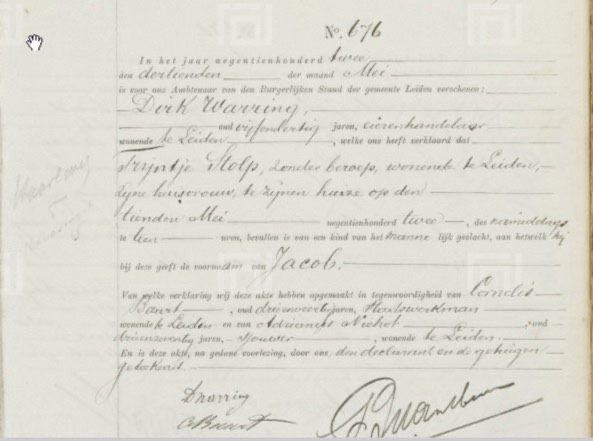 No. 676
In het jaar negentienhonderd twee
den dertienden der maand Mei
is voor ons Ambtenaar van den Burgerlijken Stand der gemeente Leiden verschenen:
Dirk Warring,
oud vijfendertig jaren, eierenhandelaar
wonende te Leiden, welke ons heeft verklaard dat
Trijntje Stolp, zonder beroep, wonende te Leiden,
zijne huisvrouw, te zijnen huize op den
tienden Mei negentienhonderd twee, des namiddags
te tien uren, bevallen is van een kind van het manne lijk geslacht, aan hetwelk hij
bij deze geeft de voornaam van Jacob.
Van welke verklaring wij deze akte hebben opgemaakt in tegenwoordigheid van Cornelis
oud drieenveertig jaren, Stadswerkman
wonende te Leiden en van Adrianus, oud
drieenzeventig jaren, sjouwer, wonende te Leiden.
En is deze akte, na gedane voorlezing, door ons, den declarant en de getuigen
geteekend.
DWarring